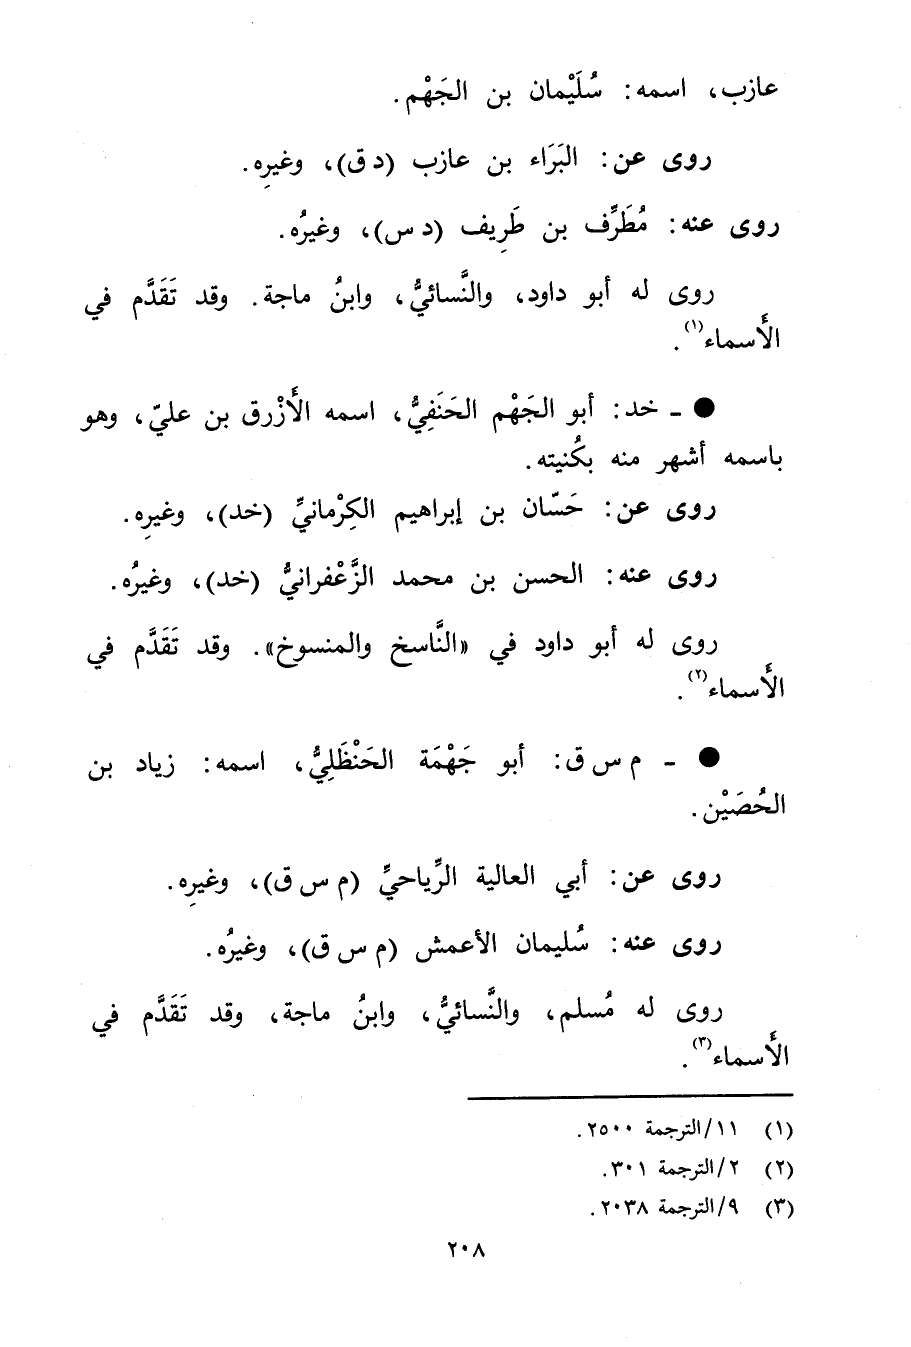 عازب، اسمه: سُلَيْمان بن الجَهْم.
روى عن: البَرَاء بن عازب (د ق)، وغيرِه.
روى عنه: مُطَرِّف بن طَرِيف (د س)، وغيرُه.
روى له أبو داود، والنَّسائيُّ، وابنُ ماجة. وقد تَقَدَّم في
الأَسماء(١).
● ـ خد: أبو الجَهْم الحَنَفِيُّ، اسمه الأَزْرق بن عليّ، وهو
باسمه أشهر منه بكُنيته.
روى عن: حَسّان بن إبراهيم الكِرْمانيِّ (خد)، وغيرِه.
روى عنه: الحسن بن محمد الزَّعْفرانيُّ (خد)، وغيرُه.
روى له أبو داود في «النَّاسخ والمنسوخ». وقد تَقَدَّم في
الأَسماء(٢).
● ـ م س ق: أبو جَهْمَة الحَنْظَلِيُّ، اسمه: زياد بن
الحُصَيْن.
روى عن: أبي العالية الرِّياحيِّ (م س ق)، وغيرِه.
روى عنه: سُليمان الأعمش (م س ق)، وغيرُه.
روى له مُسلم، والنَّسائيُّ، وابنُ ماجة، وقد تَقَدَّم في
الأَسماء(٣).
(١) ١١/الترجمة ٢٥٠٠.
(٢) ٢/الترجمة ٣٠١.
(٣) ٩/الترجمة ٢٠٣٨.
٢٠٨